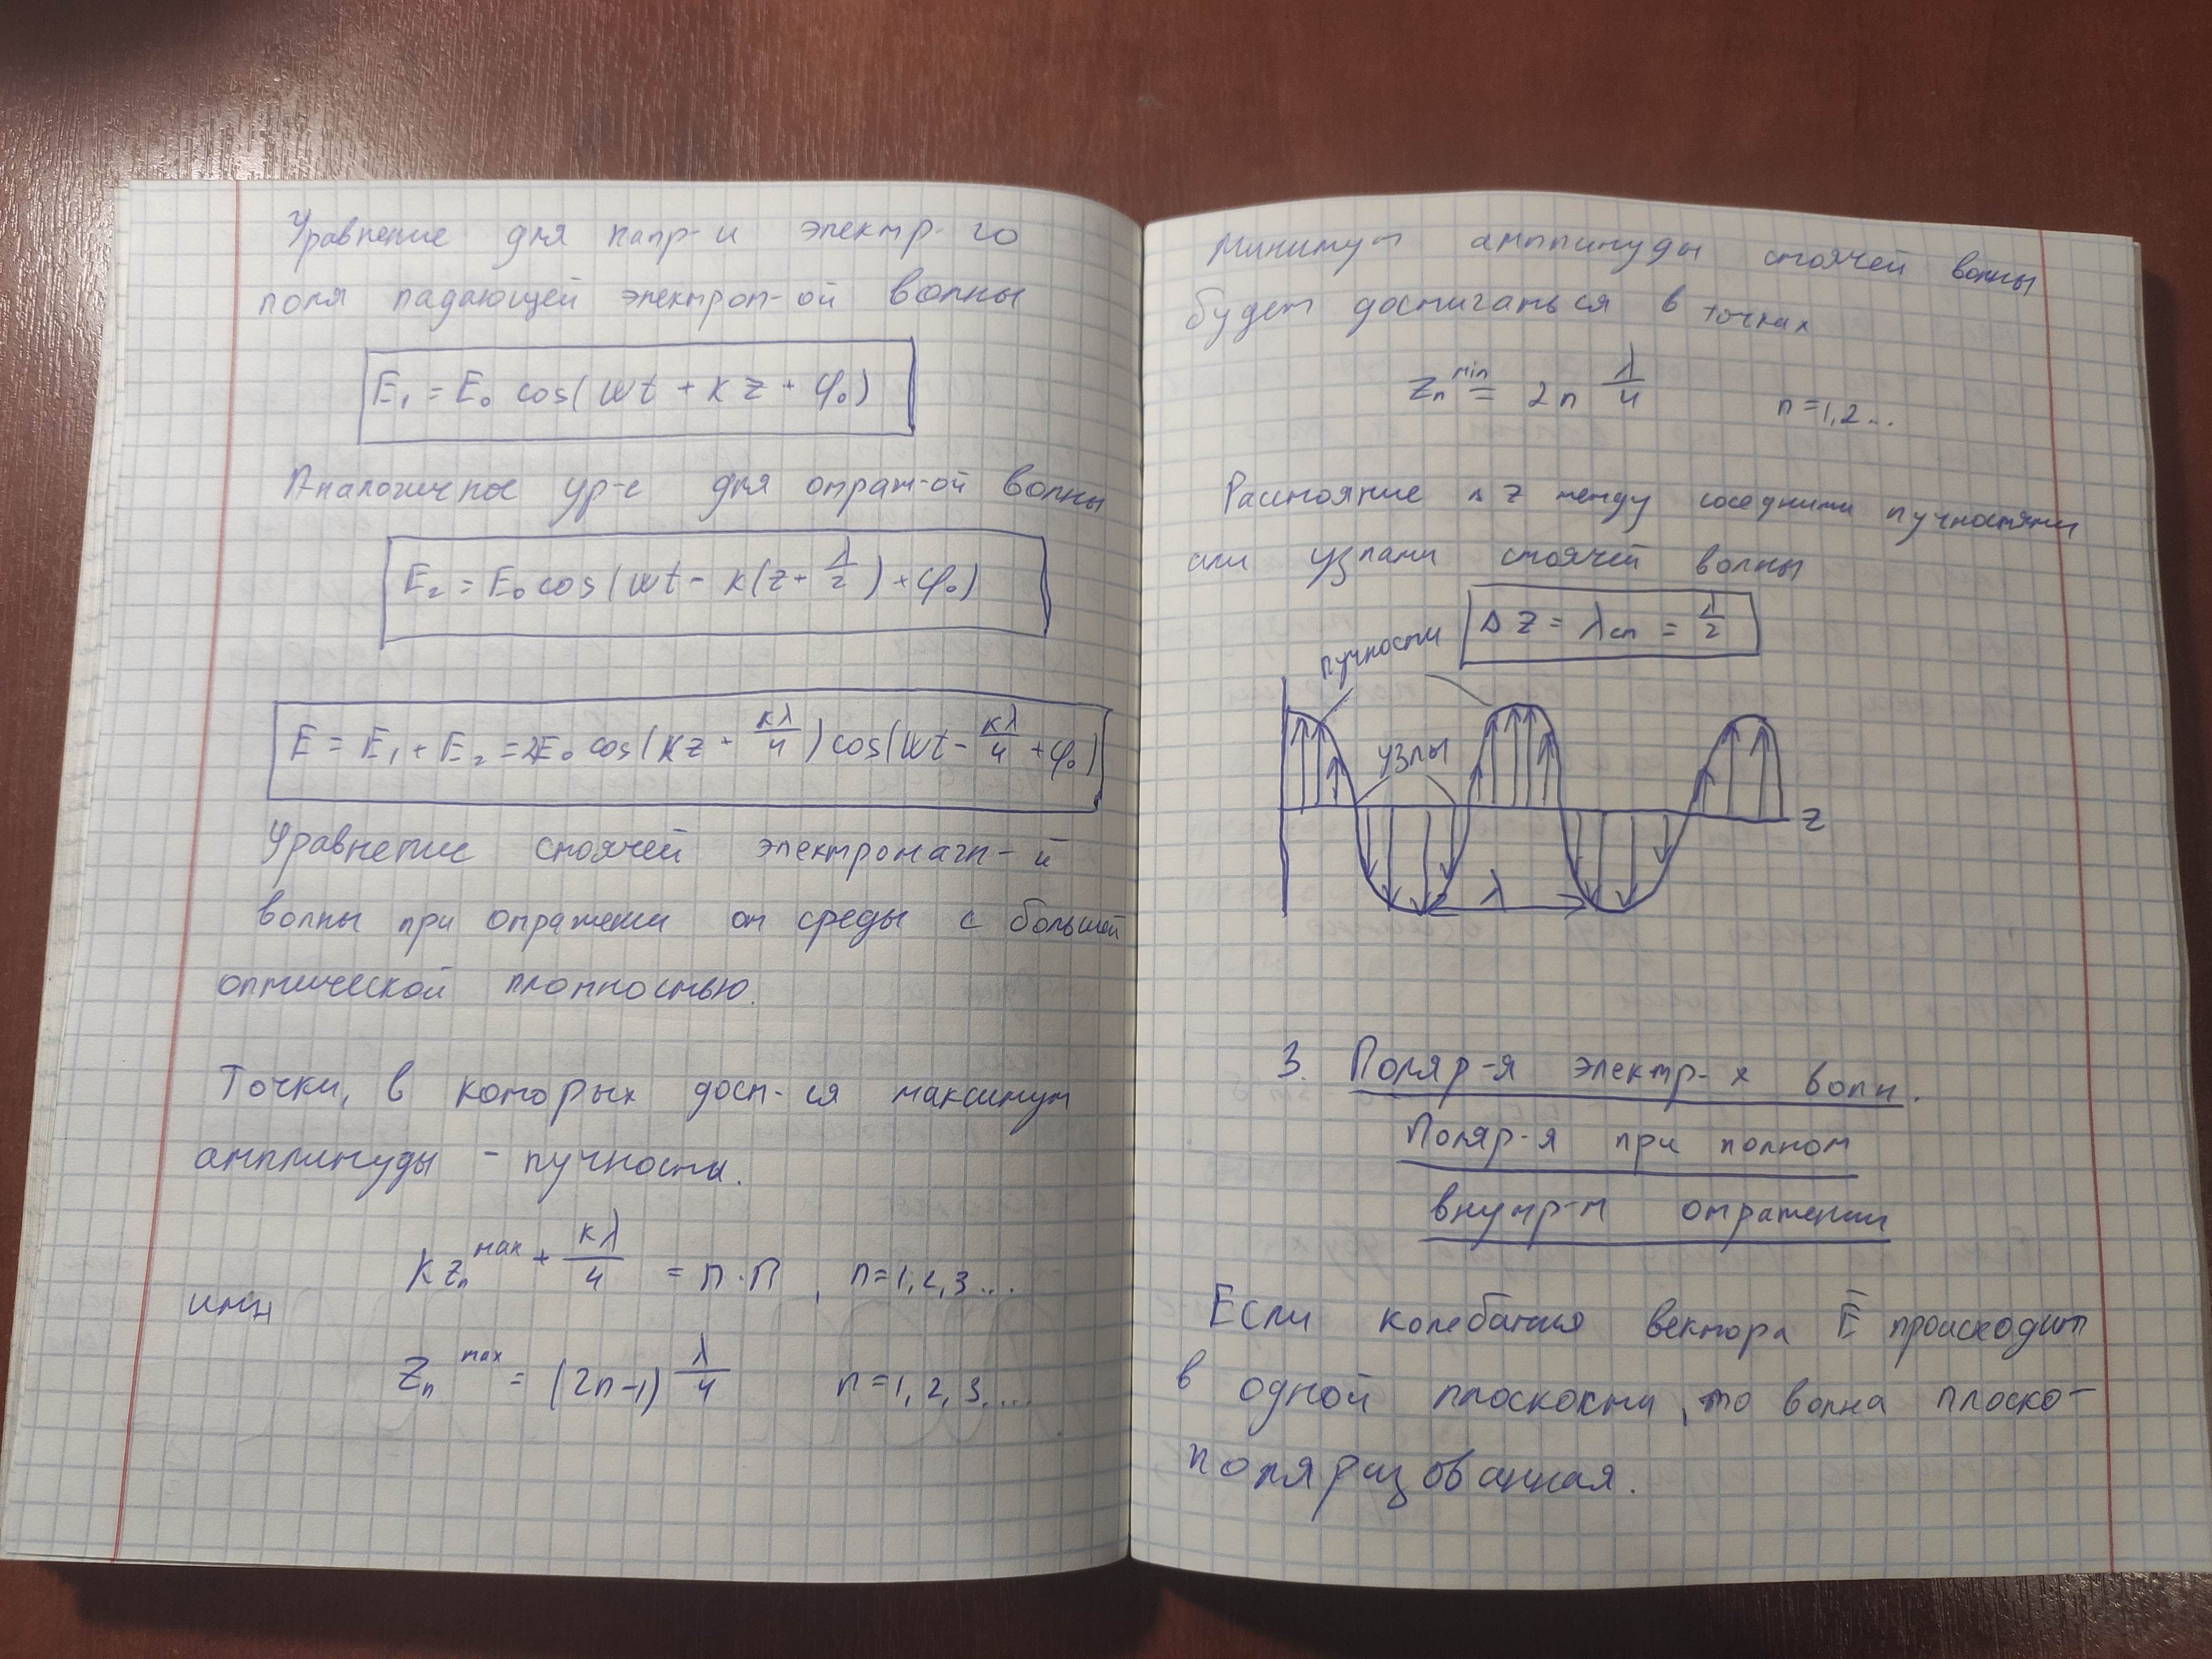 Уравнение для напр-и электр-го
поля падающей электром-ой волны
E₁ = E₀ cos(ωt + kz + φ₀)
Аналогичное ур-е для отраж-ой волны
E₂ = E₀ cos(ωt - k(z + λ/2) + φ₀)
E = E₁ + E₂ = 2E₀ cos(kz + kλ/4) cos(ωt - kλ/4 + φ₀)
Уравнение стоячей электромагн-й
волны при отражении от среды с большей
оптической плотностью.
Точки, в которых дост-ся максимум
амплитуды - пучности.
kzₙᵐᵃˣ + kλ/4 = n·π, n=1,2,3...
или
Zₙᵐᵃˣ = (2n-1) λ/4 n=1,2,3,...
Минимум амплитуды стоячей волны
будет достигаться в точках
Zₙᵐⁱⁿ = 2n λ/4 n=1,2...
Расстояние Δz между соседними пучностями
или узлами стоячей волны
ΔZ = λст = λ/2
пучности
узлы
z
λ
3. Поляр-я электр-х волн.
Поляр-я при полном
внутр-м отражении
Если колебания вектора E̅ происходит
в одной плоскости, то волна плоско-
поляризованная.